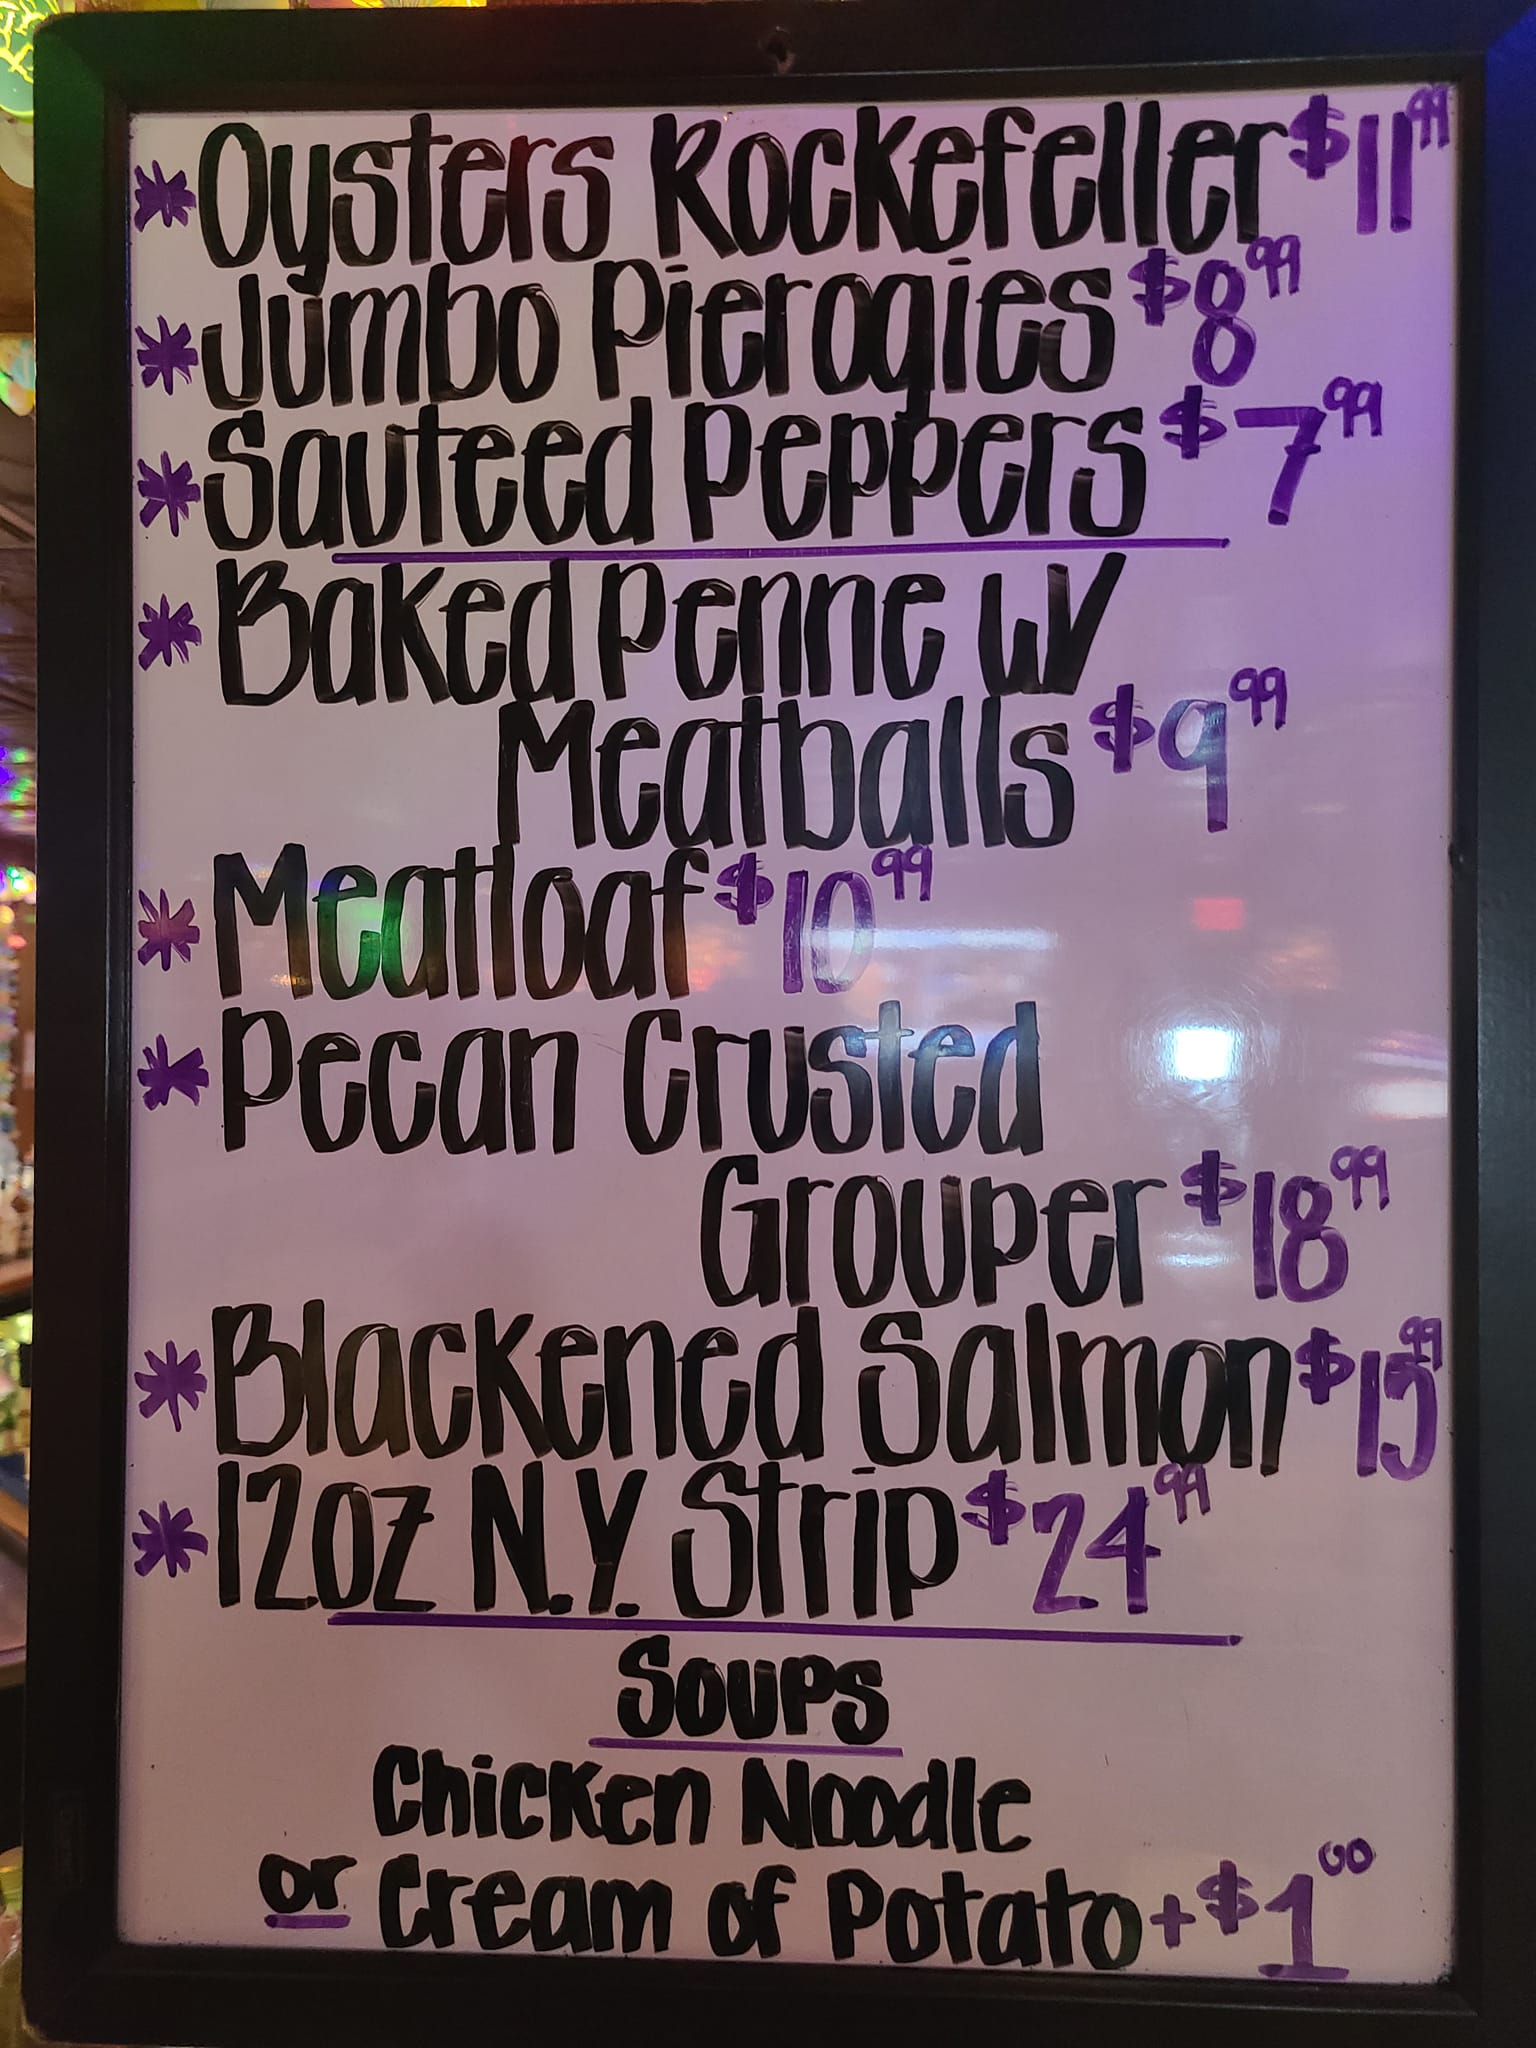 * Oysters Rockefeller $11.99
* Jumbo Pierogies $8.99
* Sauteed Peppers $7.99
* Baked Penne w/
Meatballs $9.99
* Meatloaf $10.99
* Pecan Crusted
Grouper $18.99
* Blackened Salmon $15.99
* 12oz N.Y. Strip $24.99
Soups
Chicken Noodle
or Cream of Potato +$1.00